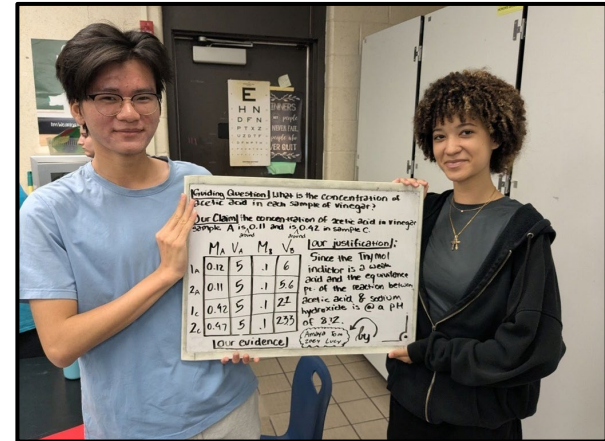 E
H N
D F N
P Y X Z
U Z D T F
INNERS
people
NEVER FAIL
people who
VER QUIT
Guiding Question| What is the concentration of
acetic acid in each sample of vinegar?
Our Claim| the concentration of acetic acid in vinegar
sample A is 0.11 and is 0.42 in sample C.
around around
MA VA MB VB
1A 0.12 5 .1 6
2A 0.11 5 .1 5.6
1C 0.42 5 .1 21
2C 0.47 5 .1 23.5
|our evidence|
|our justification|:
Since the Thymol
indictor is a weak
acid and the equivalence
pt. of the reaction between
acetic acid & sodium
hydroxide is @ a pH
of 8.72.
by
Lucy